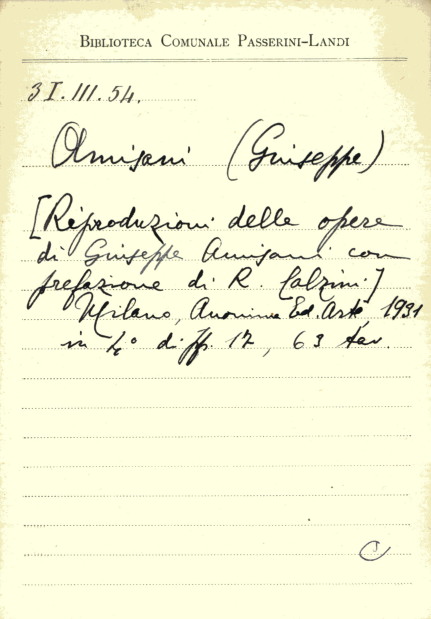 BIBLIOTECA COMUNALE PASSERINI-LANDI
3 I.III.54.
Amisani (Giuseppe)
[Riproduzioni delle opere
di Giuseppe Amisani con
prefazione di R. Calzini.]
Milano, Anonima Ed. Arte, 1931
in 4° di pp. 12, 63 tav.